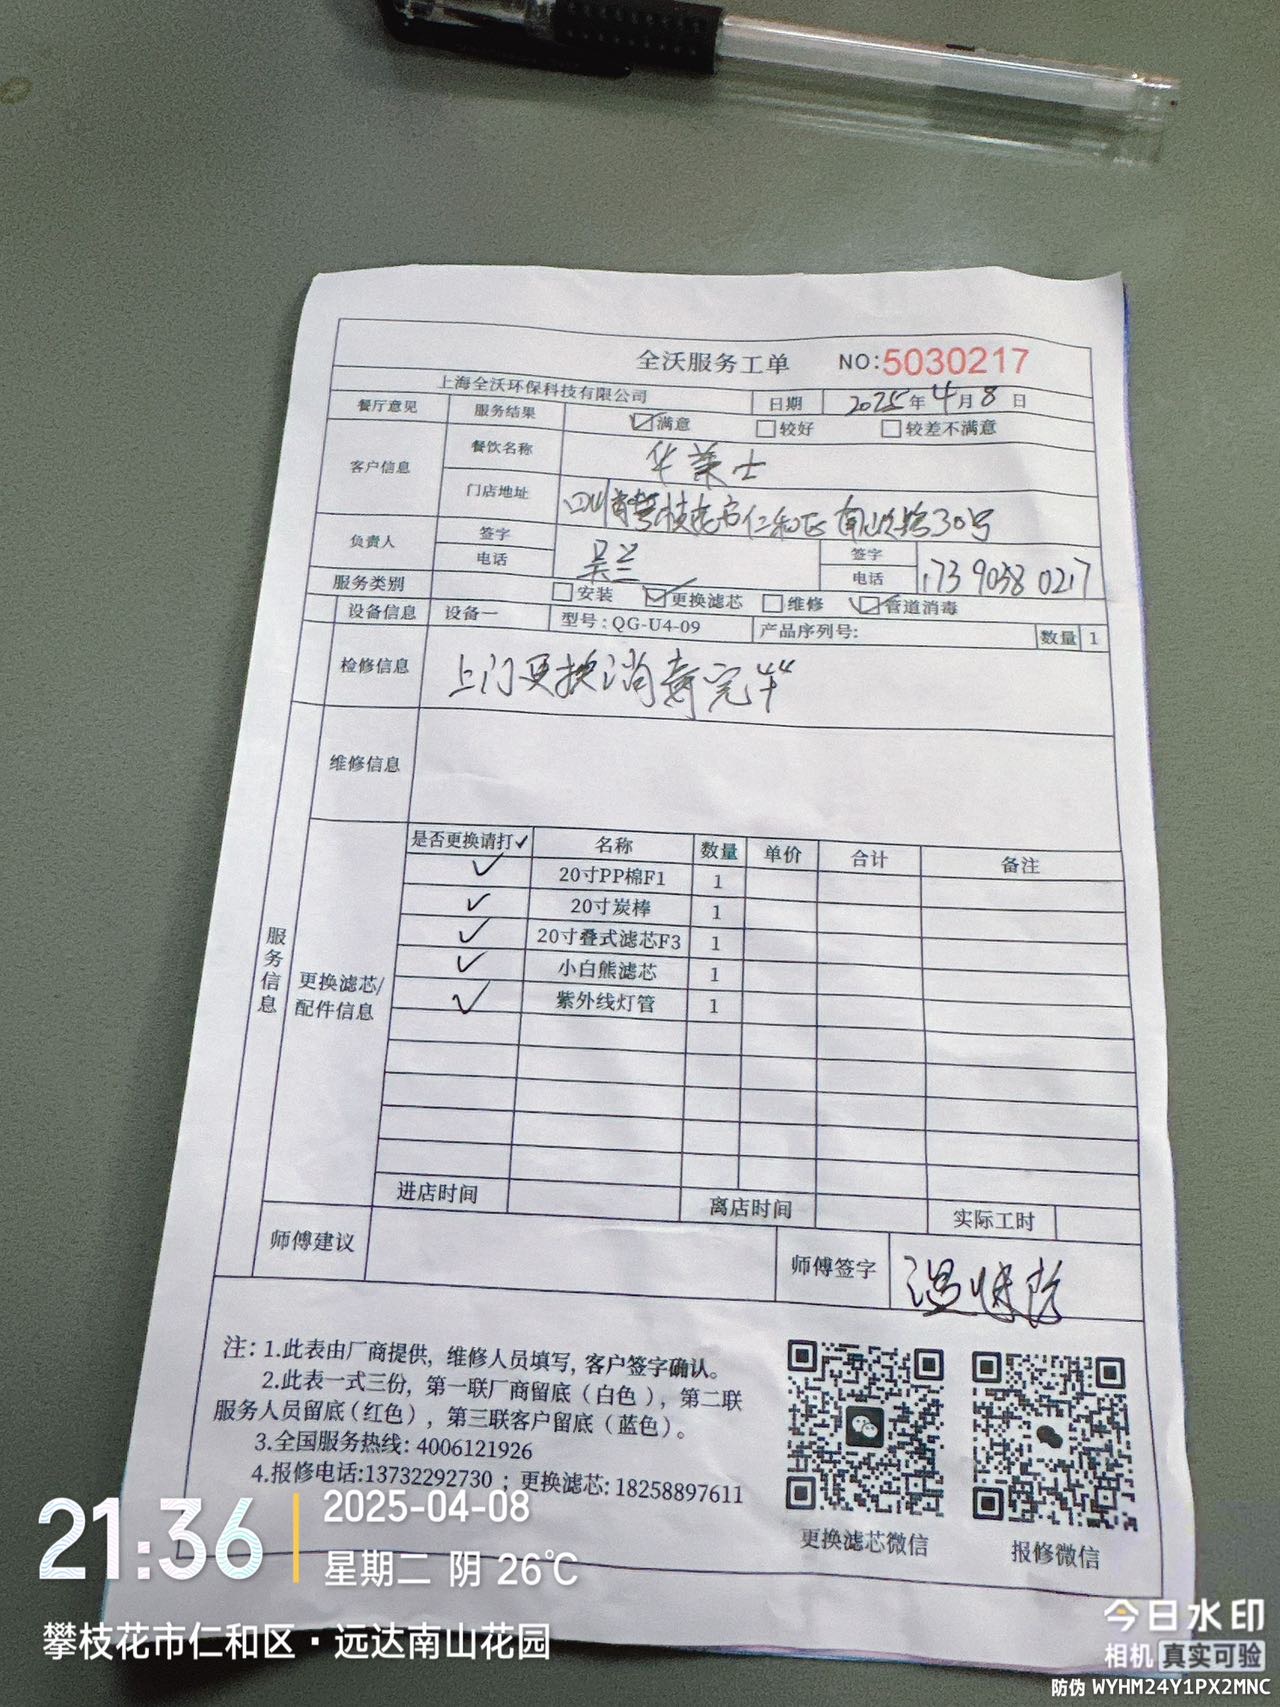 全沃服务工单 NO:5030217
上海全沃环保科技有限公司 日期 2025年4月8日
餐厅意见 服务结果 满意 较好 较差不满意
客户信息 餐饮名称 华莱士
门店地址 四川省攀枝花市仁和区南山路30号
负责人 签字 吴兰 签字
电话 电话 17390580217
服务类别 安装 更换滤芯 维修 管道消毒
设备信息 设备一 型号:QG-U4-09 产品序列号: 数量 1
检修信息 上门更换消毒完毕
维修信息
服务信息
更换滤芯/配件信息
是否更换请打✓ 名称 数量 单价 合计 备注
✓ 20寸PP棉F1 1
✓ 20寸炭棒 1
✓ 20寸叠式滤芯F3 1
✓ 小白熊滤芯 1
✓ 紫外线灯管 1
进店时间 离店时间 实际工时
师傅建议 师傅签字
注:1.此表由厂商提供,维修人员填写,客户签字确认。
2.此表一式三份,第一联厂商留底(白色),第二联
服务人员留底(红色),第三联客户留底(蓝色)。
3.全国服务热线:4006121926
4.报修电话:13732292730 ;更换滤芯:18258897611
更换滤芯微信 报修微信
21:36 2025-04-08
星期二 阴 26℃
攀枝花市仁和区·远达南山花园
今日水印
相机 真实可验
防伪 WYHM24Y1PX2MNC